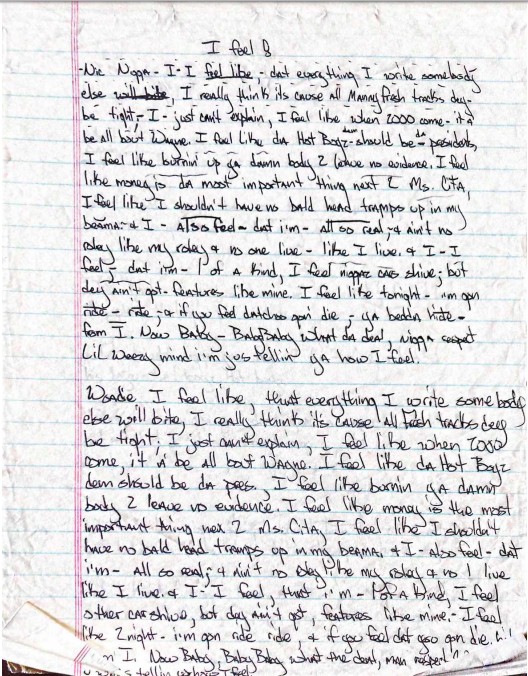 I feel
Nic Nigga - I - I feel like, - dat everything I write somebody
else will bite, I really think its cause all Mannyfresh tracks dey
be tight, - I - just can't explain, I feel like when 2000 come - it'a
be all bout Wayne. I feel like da Hot Boyz dem should be - da presidents,
I feel like burnin up ya damn body 2 leave no evidence. I feel
like money is da most important thing next 2 Ms. CitA,
I feel like I shouldn't have no bald head tramps up in my
beama. & I - Also feel - dat i'm - All so real, & Ain't no
roley like my roley & no one live - like I live. & I - I
feel, - dat i'm - 1 of A kind, I feel niggaz cars shive; but
dey ain't got - features like mine. I feel like tonight - i'm gon
ride - ride, & if you feel datchoo gon die, - ya bedda hide -
from I. Now Baby - BabyBaby what da deal, nigga respect
Lil Weezy mind i'm jus tellin ya how I feel.
Woadie I feel like, that everything I write some body
else will bite, I really think its cause all Fresh tracks deep
be tight. I just can't explain, I feel like when 2000
come, it'a be all bout Wayne. I feel like da Hot Boyz
dem should be da pres., I feel like burnin ya damn
body 2 leave no evidence. I feel like money is the most
important thing nex 2 Ms. CitA, I feel like I shouldn't
have no bald head tramps up in my beama. & I - also feel - dat
i'm - all so real; & ain't no roley like my roley & no 1 live
like I live. & I - I feel, that i'm - 1 of A kind, I feel
other car shive, but day ain't got, features like mine. - I feel
like 2night - i'm gon ride ride & if you feel dat you gon die.
I. Now Baby, Baby Baby what the deal, man respect
tellin feel